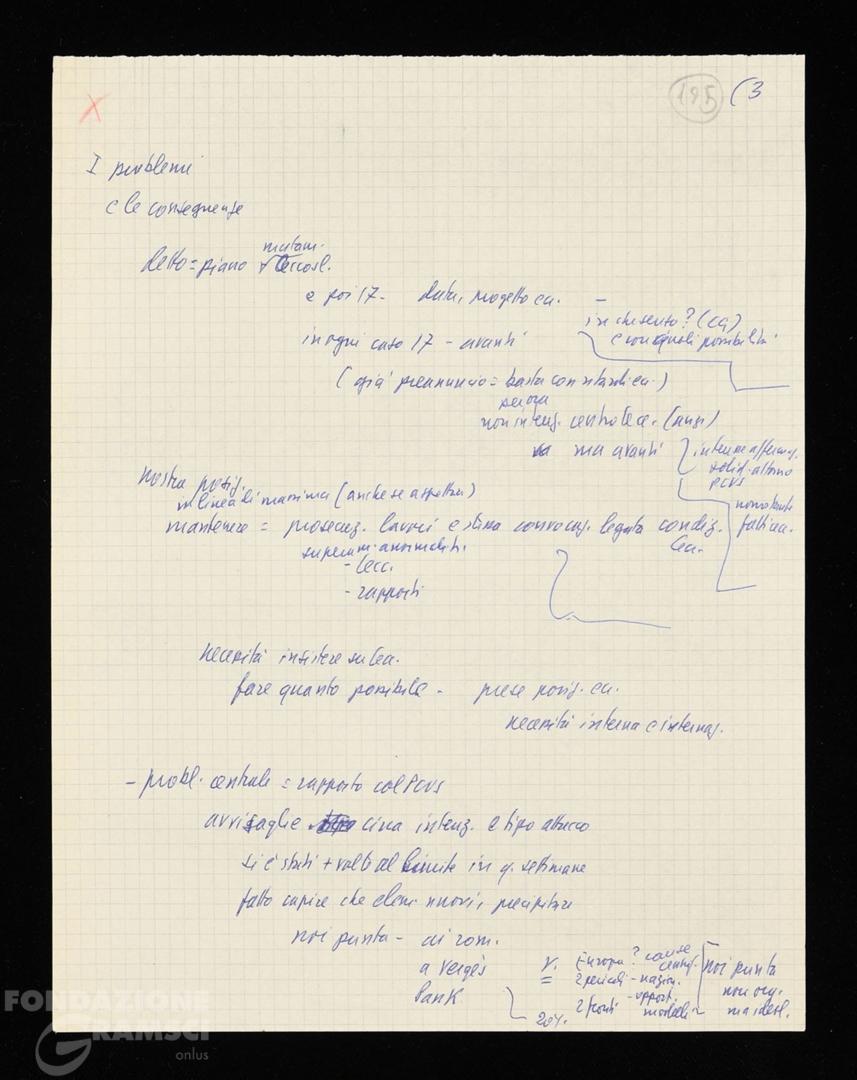 195 (3
I problemi
e le conseguenze
detto = piano
mutam.
Cecosl.
e poi 17 - data, progetto ecc. -
in che senso? (CC)
e con quali possibilità
in ogni caso 17 - avanti
(già preannuncio = basta con
non intenz. centro Cec. (anzi)
ma avanti
solid. attorno
PCUS
nostra posiz.
in linea di massima (anche se aspettu)
mantenere = prosecuz. lavori e convocaz. legata condiz.
Cec.
superam. anormalità
- Cecc.
- rapporti
necessità insistere su Cec.
fare quanto possibile - prese posiz. ecc.
necessità interna e internaz.
- probl. centrale = rapporto col PCUS
avvisaglie circa intenz. e tipo attacco
si è stati + volte al limite in q. settimane
fatto capire che elem. nuovi, precipitare
noi punta - ai rom.
a Vergès
Pank
v. Europa? cause
= 2 pericoli - nazion.
2 fronti - opport.
204.
noi punta
non org.
ma ideol.
FONDAZIONE
GRAMSCI
onlus